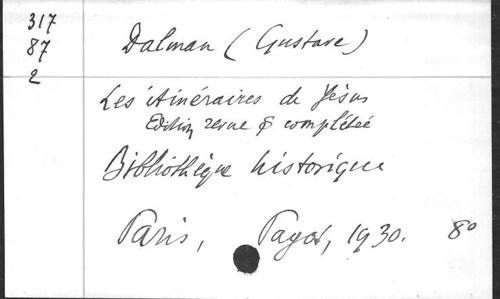 317
87
2
Dalman (Gustave)
Les itinéraires de Jésus
Edition revue & complétée
Bibliothèque historique
Paris, Payot, 1930. 8º